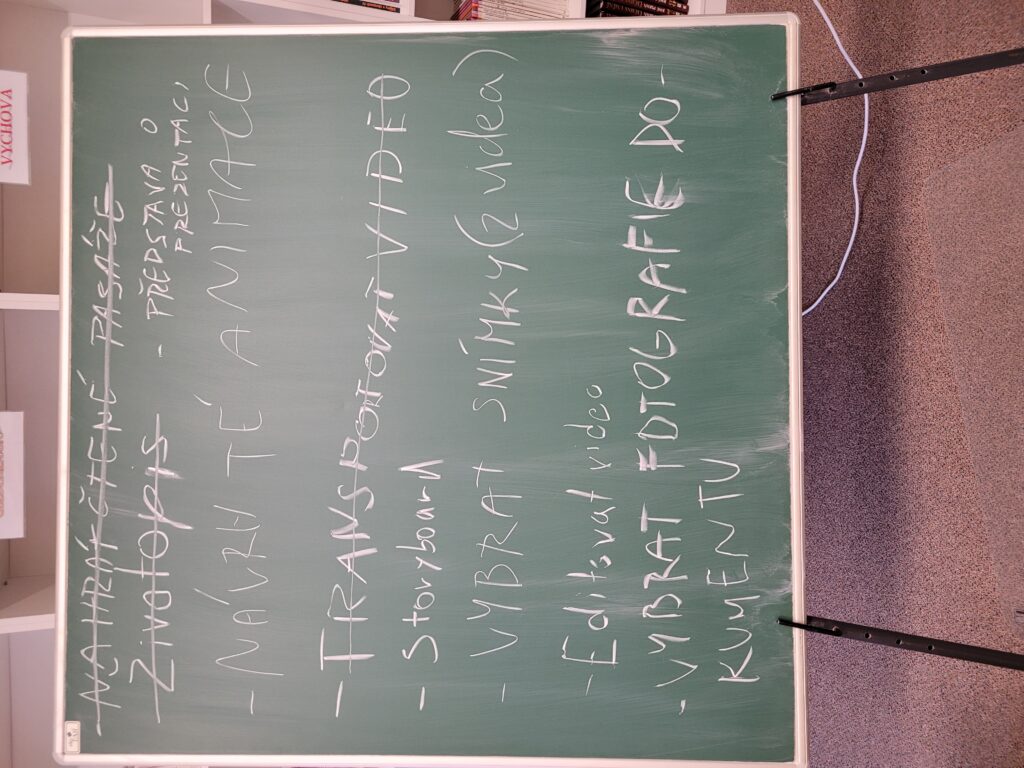 - NAHRÁT ČTENÉ PASÁŽE
- ŽIVOTOPIS - PŘEDSTAVA O
PREZENTACI
- NÁVRH TÉ ANIMACE
- TRANSPOTOVAT VIDEO
- Storyboard
- VYBRAT SNÍMKY (z videa)
- Editovat video
- VYBRAT FOTOGRAFIE DO-
KUMENTU
VÝCHOVA